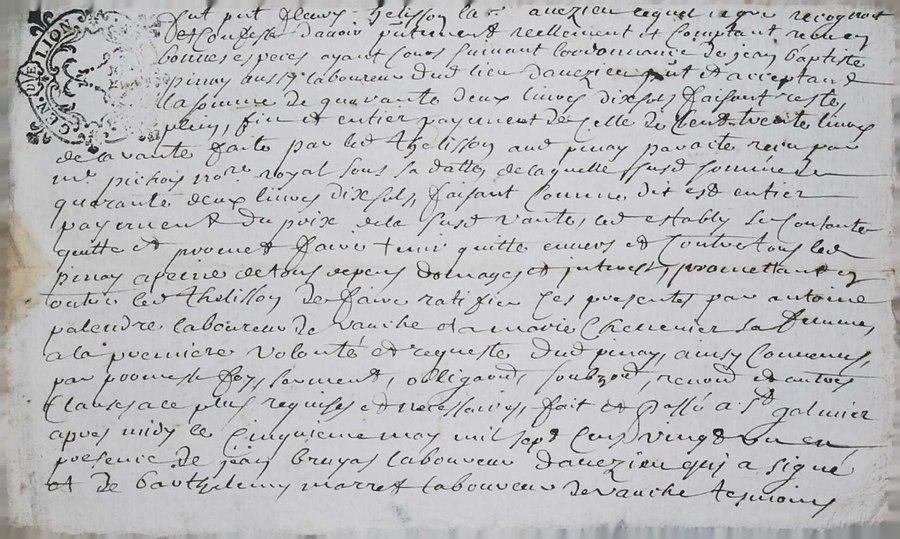 GEN. DE LION
fut pnt fleury thelisson lab. auezieu lequel de gre recognoit
et confesse dauoir putment reellement et comptant receu en
bonnes especes ayant cours suiuant lordonnance de jean baptiste
pinay aussy laboureur dud lieu dauezieu pnt et acceptant
la somme de quarante deux liures dixsols, faisant reste,
plein, fin et entier payement de celle de cent trente liures
de la vante faite par led thelisson aud pinay paracte receu par
me pichois nore royal sous sa datte, de laquelle susd somme de
quarante deux liures dixsols, faisant comme dit est entier
payement du prix de la susd vante, led estably se contante
quitte et promet faire tenir quitte enuers et contre tous led
pinay a peine de tous depens domages et interest, promettant en
outre led thelisson de faire ratifier ces presentes par antoine
palendre laboureur de vauche et a marie chenenier sa femme,
a la premiere volonté et requeste dud pinay, ainsy conuenu,
par promesse foy, serment, obligaon, soubzon, renon et autres
clauses a ce plus requises et necessaires, fait et passé a st galmier
apres midy le cinquieme may mil sept cens vingt un en
presence de jean bruyas laboureur dauezieu qui a signé
et de barthelemy marret laboureur de vauche tesmoins